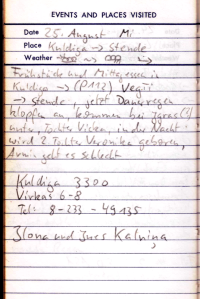 EVENTS AND PLACES VISITED
Date 25. August Mi
Place Kuldiga → Stende
Weather
Frühstück und Mittagessen in
Kuldiga → (P112) Vegii
→ Stende, jetzt Dauerregen
klopfen an, kommen bei
unter, Tochter Vicken, in der Nacht
wird 2. Tochter Veronika geboren,
Armin geht es schlecht
Kuldiga 3300
Virkas 6-8
Tel: 8-233-49135
Ilona und Ines Kalnina